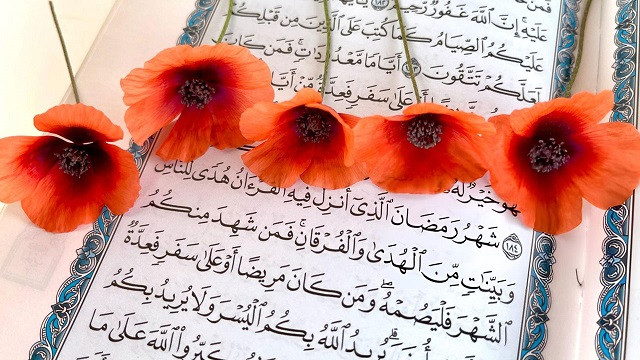 عَلَيْهِ إِنَّ ٱللَّهَ غَفُورٌ رَّحِيمٌ ١٨٢
عَلَيْكُمُ ٱلصِّيَامُ كَمَا كُتِبَ عَلَى ٱلَّذِينَ مِن قَبْلِكُمْ
لَعَلَّكُمْ تَتَّقُونَ ١٨٣ أَيَّامًا مَّعْدُودَٰتٍ ۚ فَمَن كَانَ
عَلَىٰ سَفَرٍ فَعِدَّةٌ مِّنْ أَيَّامٍ
فَهُوَ خَيْرٌ لَّهُ
١٨٤
شَهْرُ رَمَضَانَ ٱلَّذِىٓ أُنزِلَ فِيهِ ٱلْقُرْءَانُ هُدًى لِّلنَّاسِ
وَبَيِّنَٰتٍ مِّنَ ٱلْهُدَىٰ وَٱلْفُرْقَانِ ۚ فَمَن شَهِدَ مِنكُمُ
ٱلشَّهْرَ فَلْيَصُمْهُ ۖ وَمَن كَانَ مَرِيضًا أَوْ عَلَىٰ سَفَرٍ فَعِدَّةٌ
يُرِيدُ ٱللَّهُ بِكُمُ ٱلْيُسْرَ وَلَا يُرِيدُ بِكُمُ
ٱللَّهَ عَلَىٰ مَا